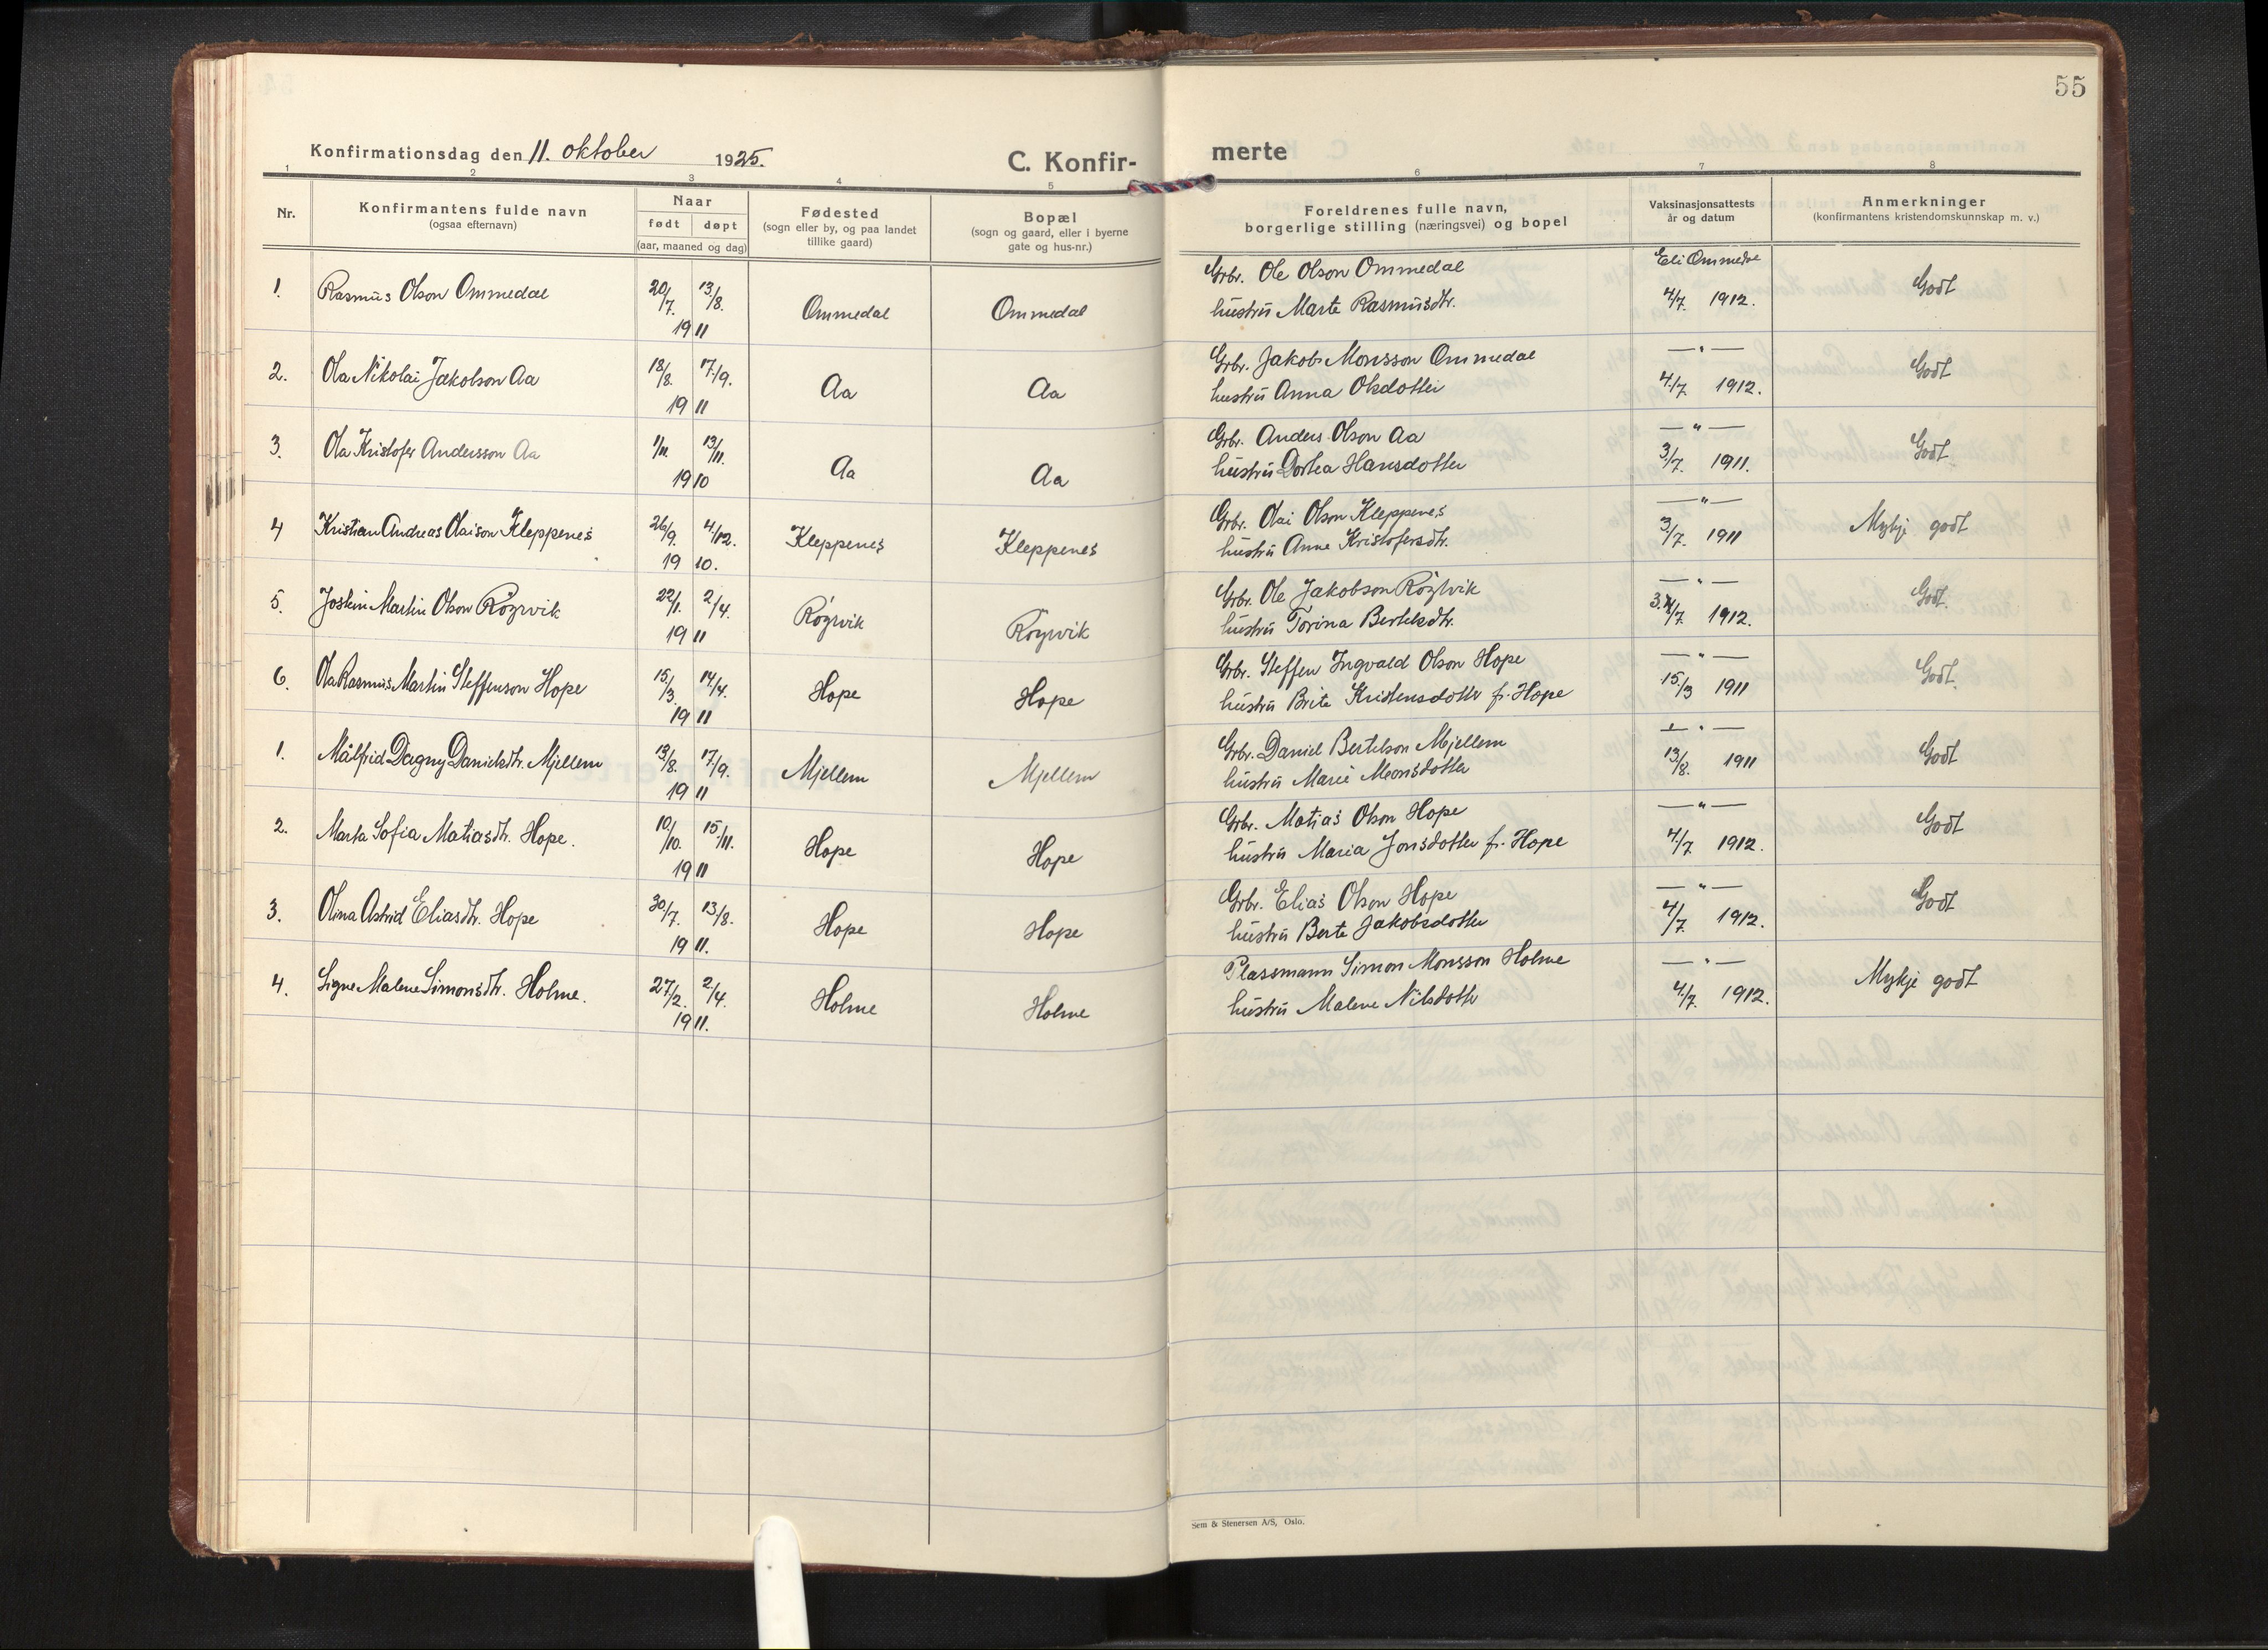 55
Konfirmationsdag den 11. oktober 1925.
C. Konfir-
merte
1 2 3 4 5 6 7 8
Nr.
Konfirmantens fulde navn
(ogsaa efternavn)
Naar
født døpt
(aar, maaned og dag)
Fødested
(sogn eller by, og paa landet
tillike gaard)
Bopæl
(sogn og gaard, eller i byerne
gate og hus-nr.)
Foreldrenes fulle navn,
borgerlige stilling (næringsvei) og bopel
Vaksinasjonsattests
år og datum
Anmerkninger
(konfirmantens kristendomskunnskap m. v.)
1. Rasmus Olson Ommedal 20/7. 13/8. 1911 Ommedal Ommedal
Grbr. Ole Olson Ommedal Eli Ommedal
hustru Marte Rasmusdtr. 4/7. 1912. Godt
2. Ola Nikolai Jakobson Aa 18/8. 17/9. 1911 Aa Aa
Grbr. Jakob Monsson Ommedal — " —
hustru Anna Olsdotter 4/7 1912. Godt
3. Ola Kristofer Andersson Aa 1/11. 13/11. 1910 Aa Aa
Grbr. Anders Olson Aa — " —
hustru Dortea Hansdotter 3/7. 1911. Godt
4 Kristian Andreas Olaison Kleppenes 26/9. 4/12. 1910. Kleppenes Kleppenes
Grbr. Olai Olson Kleppenes — " —
hustru Anne Kristofersdtr. 3/7. 1911 Mykje godt
5. Joskin Martin Olson Röyrvik 22/1. 2/4. 1911 Röyrvik Röyrvik
Grbr. Ole Jakobson Röyrvik — " —
hustru Torina Bertelsdtr. 4/7. 1912. Godt.
6. Ola Rasmus Martin Steffenson Hope 15/3. 14/4. 1911 Hope Hope
Grbr. Steffen Ingvald Olson Hope — " —
hustru Brite Kristensdotter f. Hope 15/3 1911 Godt.
1. Målfrid Dagny Danielsdtr. Mjellem 13/8. 17/9. 1911 Mjellem Mjellem
Grbr. Daniel Bertelson Mjellem — " —
hustru Marie Monsdotter 13/8. 1911 Godt
2. Marta Sofia Matiasdtr. Hope. 10/10. 15/11. 1911 Hope Hope
Grbr. Matias Olson Hope — " —
hustru Maria Jonsdotter f. Hope 4/7 1912. Godt
3. Olina Astrid Eliasdtr. Hope 30/7. 13/8. 1911. Hope Hope
Grbr. Elias Olson Hope — " —
hustru Berte Jakobsdotter 4/7. 1912. Godt
4. Signe Malene Simonsdtr. Holme. 27/2. 2/4. 1911. Holme Holme
Plassmann Simon Monsson Holme — " —
hustru Malene Nilsdotter 4/7. 1912. Mykje godt
Sem & Stenersen A/S, Oslo.